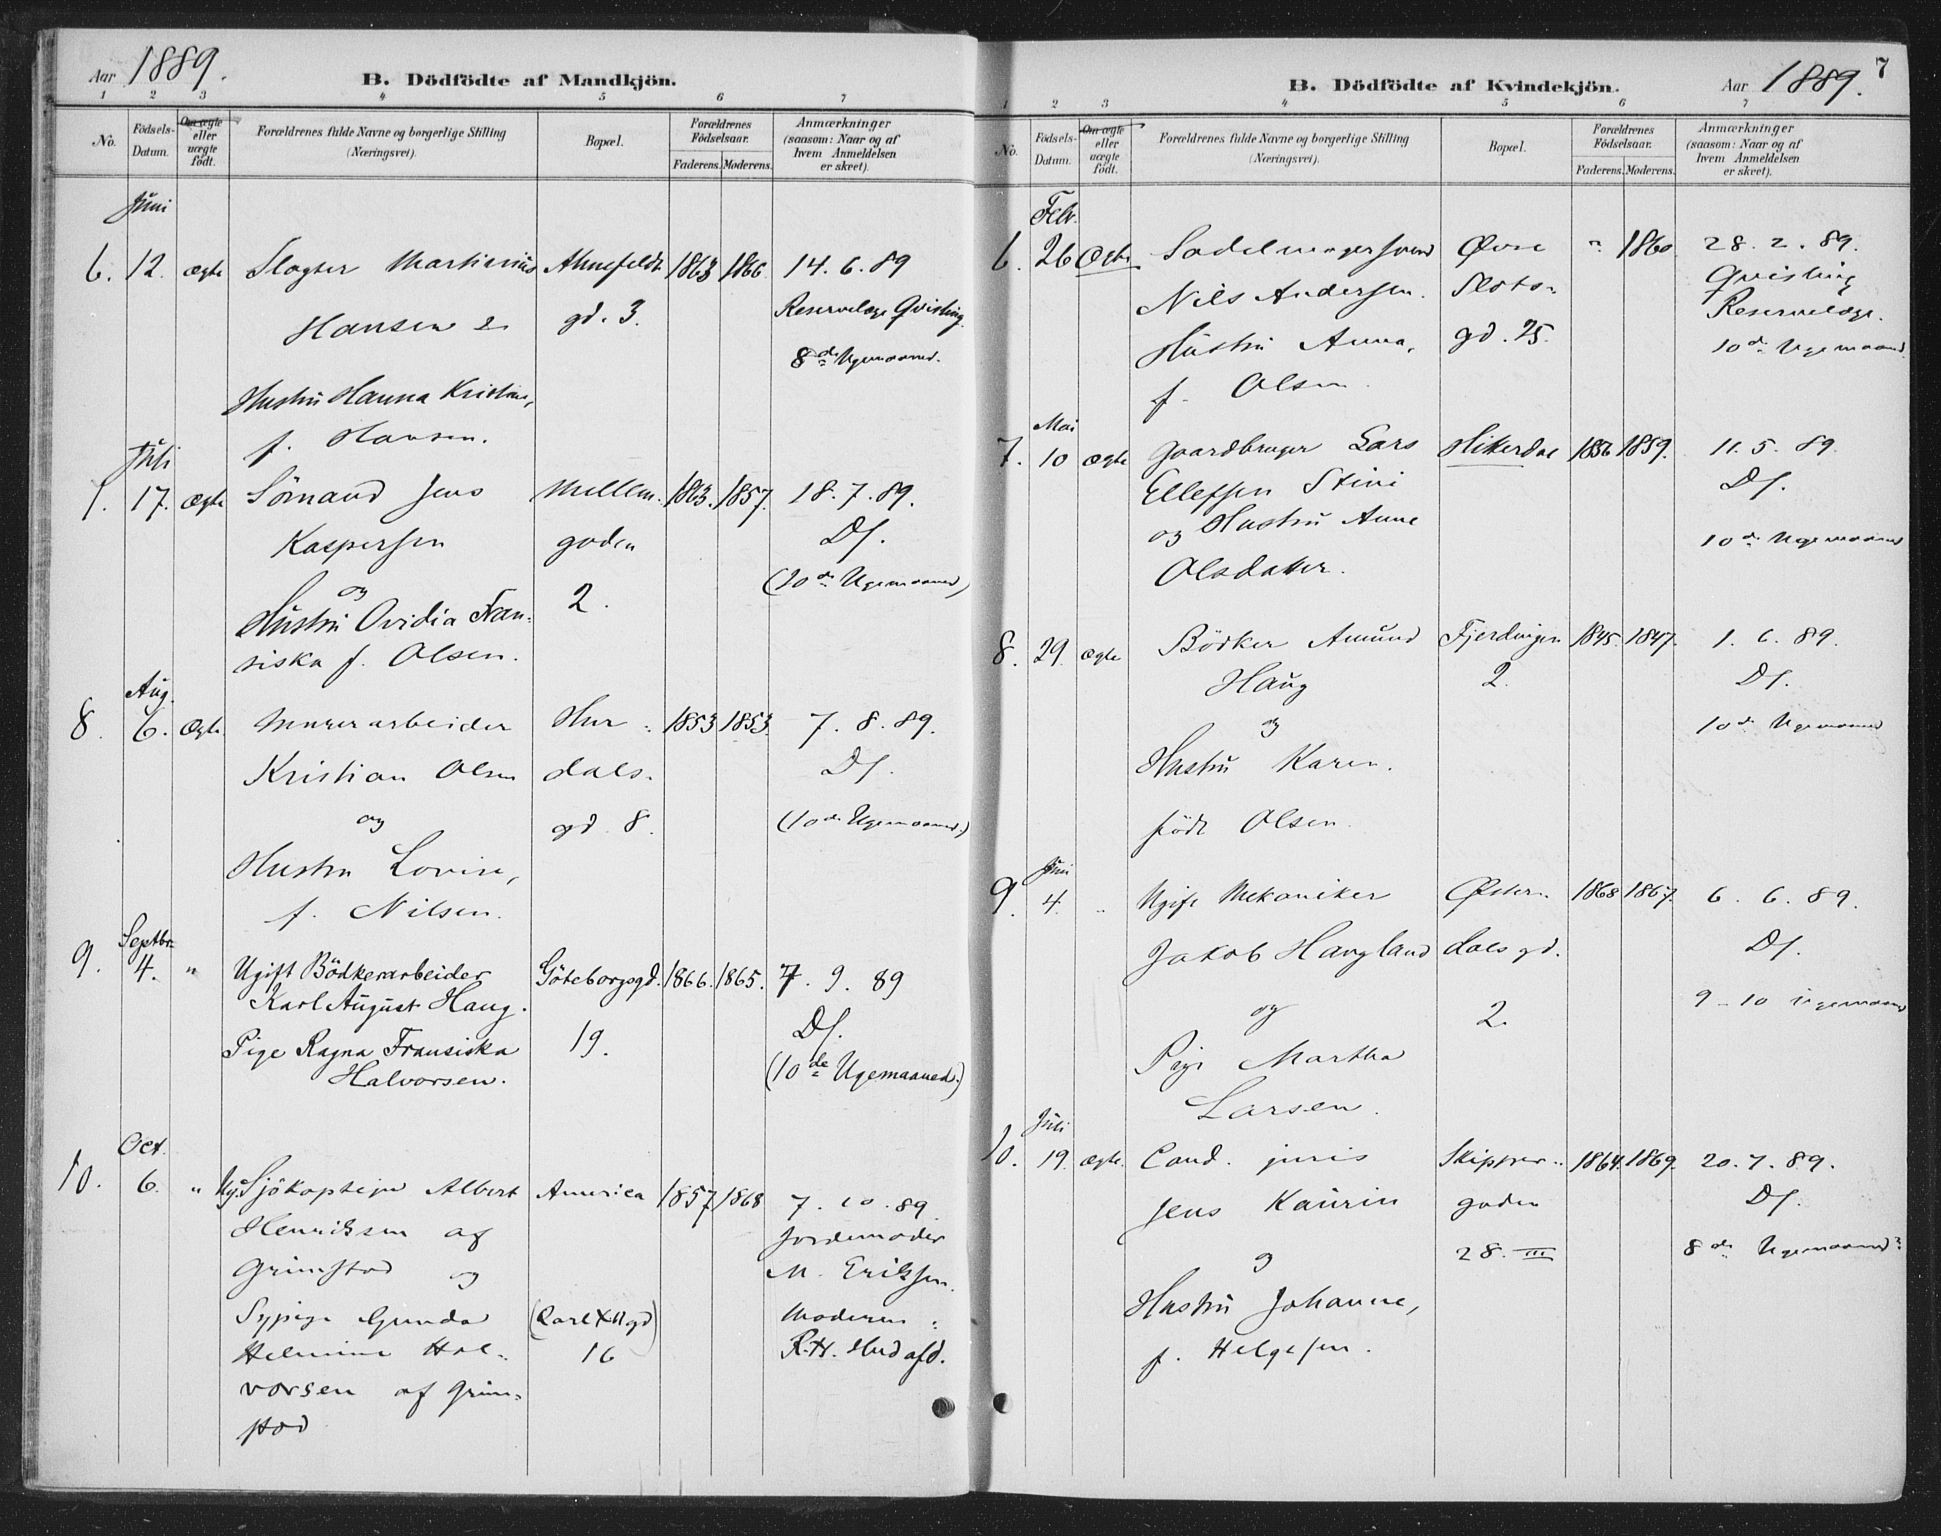 Aar 1889.
B. Dödfödte af Mandkjön.
1 2 3 4 5 6 7
No.
Födsels-
Datum.
Om ægte
eller
uægte
födt.
Forældrenes fulde Navne og borgerlige Stilling
(Næringsvei).
Bopæl.
Forældrenes
Födselsaar.
Faderens. Moderens.
Anmærkninger
(saasom: Naar og af
hvem Anmeldelsen
er skeet).
Juni
6. 12. ægte Slagter Martinius Ahnefeldt 1863 1866. 14. 6. 89
Hansen & gd. 3. Reservelæge Qvisling.
8de Ugemaaned.
Hustru Hanna Kristine,
f. Hansen.
Juli
17. ægte Sömand Jens Mellem- 1863. 1857. 18. 7. 89.
Kaspersen gaden Ds.
og 2. (10de Ugemaaned)
Hustru Ovidia Fran-
siska f. Olsen.
Aug.
8. 6. Ægte Murerarbeider Hur- 1853 1853. 7. 8. 89.
Kristian Olsen dals- Ds.
og gd. 8. (10de Ugemaaned.)
Hustru Lovise,
f. Nilsen.
Septbr.
9. 4. " Ugift Bödkerarbeider Göteborgsgd. 1866. 1865. 7. 9. 89
Karl August Haug. Ds.
Pige Ragna Fransiska 19. (10de Ugemaaned.)
Halvorsen.
Oct.
10. 6. " Ug. Sjökaptejn Albert America 1857 1868 7. 10. 89.
Henriksen af Jordemoder
Grimstad og M. Eriksen.
Sypige Gunda (Carl XII gd) Moderen:
Helmine Hal- 16 R.H. Hudafd.
vorsen af Grim-
stad
7
B. Dödfödte af Kvindekjön.
Aar 1889.
1 2 3 4 5 6 7
No.
Födsels-
Datum.
Om ægte
eller
uægte
födt.
Forældrenes fulde Navne og borgerlige Stilling
(Næringsvei).
Bopæl.
Forældrenes
Födselsaar.
Faderens. Moderens.
Anmærkninger
(saasom: Naar og af
hvem Anmeldelsen
er skeet).
Febr.
6. 26 Ægte Sadelmagersvend Øvre " 1860 28. 2. 89.
Nils Andersen. Slots- Qvisling
Hustru Anna, gd. 25. Reservelæge.
f. Olsen. 10de Ugemaaned
Mai
7. 10 ægte Gaardbruger Lars Hikerdal 1856 1859. 11. 5. 89.
Ellefsen Stivi Ds.
og Hustru Anne 10de Ugemaaned
Olsdatter.
8. 29. ægte Bödker Amund Fjerdingen 1845. 1847. 1. 6. 89.
Haug 2. Ds.
og 10de Ugemaaned
Hustru Karen.
födt Olsen.
Juni
9. 4. " Ugift Mekaniker Øster- 1868 1867. 6. 6. 89.
Jakob Haugland dals gd. Ds.
og 2. 9-10 Ugemaaned
Pige Martha
Larsen.
Juli
10. 19. ægte. Cand. juris Skipper- 1864. 1869. 20. 7. 89.
Jens Kaurin gaden Ds.
og 28. III 8de Ugemaaned?
Hustru Johanne,
f. Helgesen.